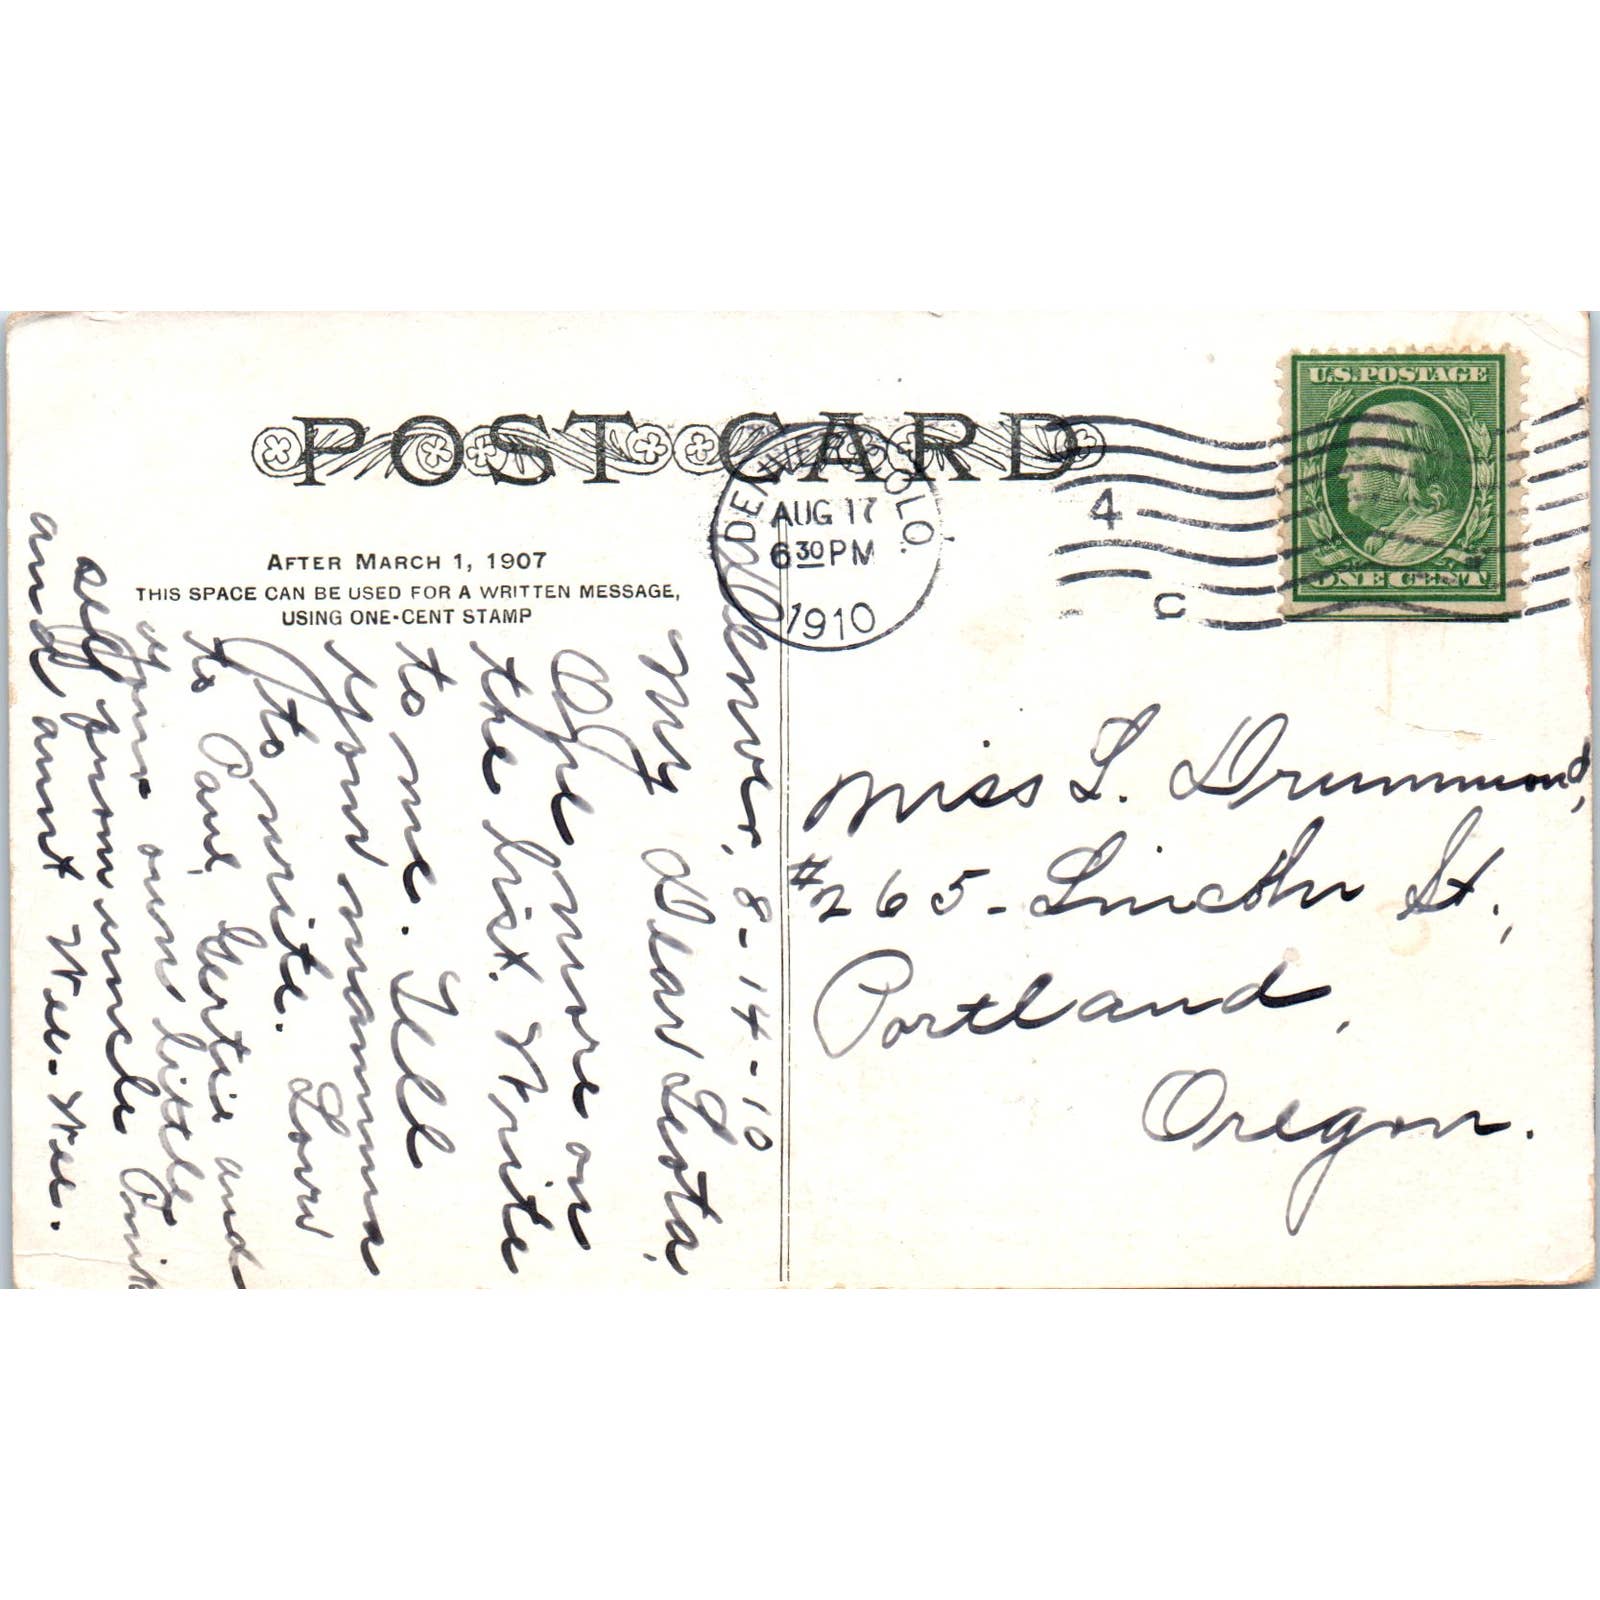 POST CARD
DENVER COLO.
AUG 17
6 30 PM
1910
4
C
U.S. POSTAGE
ONE CENT
AFTER MARCH 1, 1907
THIS SPACE CAN BE USED FOR A WRITTEN MESSAGE,
USING ONE-CENT STAMP
Denver, 8-14-10
My Dear Leota,
One more on
the list. Write
to me. Tell
your mamma
to write. Love
to Paul, Gertie and
your own little
self from uncle
and aunt Wee-Wee.
Miss L. Drummond,
#265-Lincoln St.,
Portland,
Oregon.